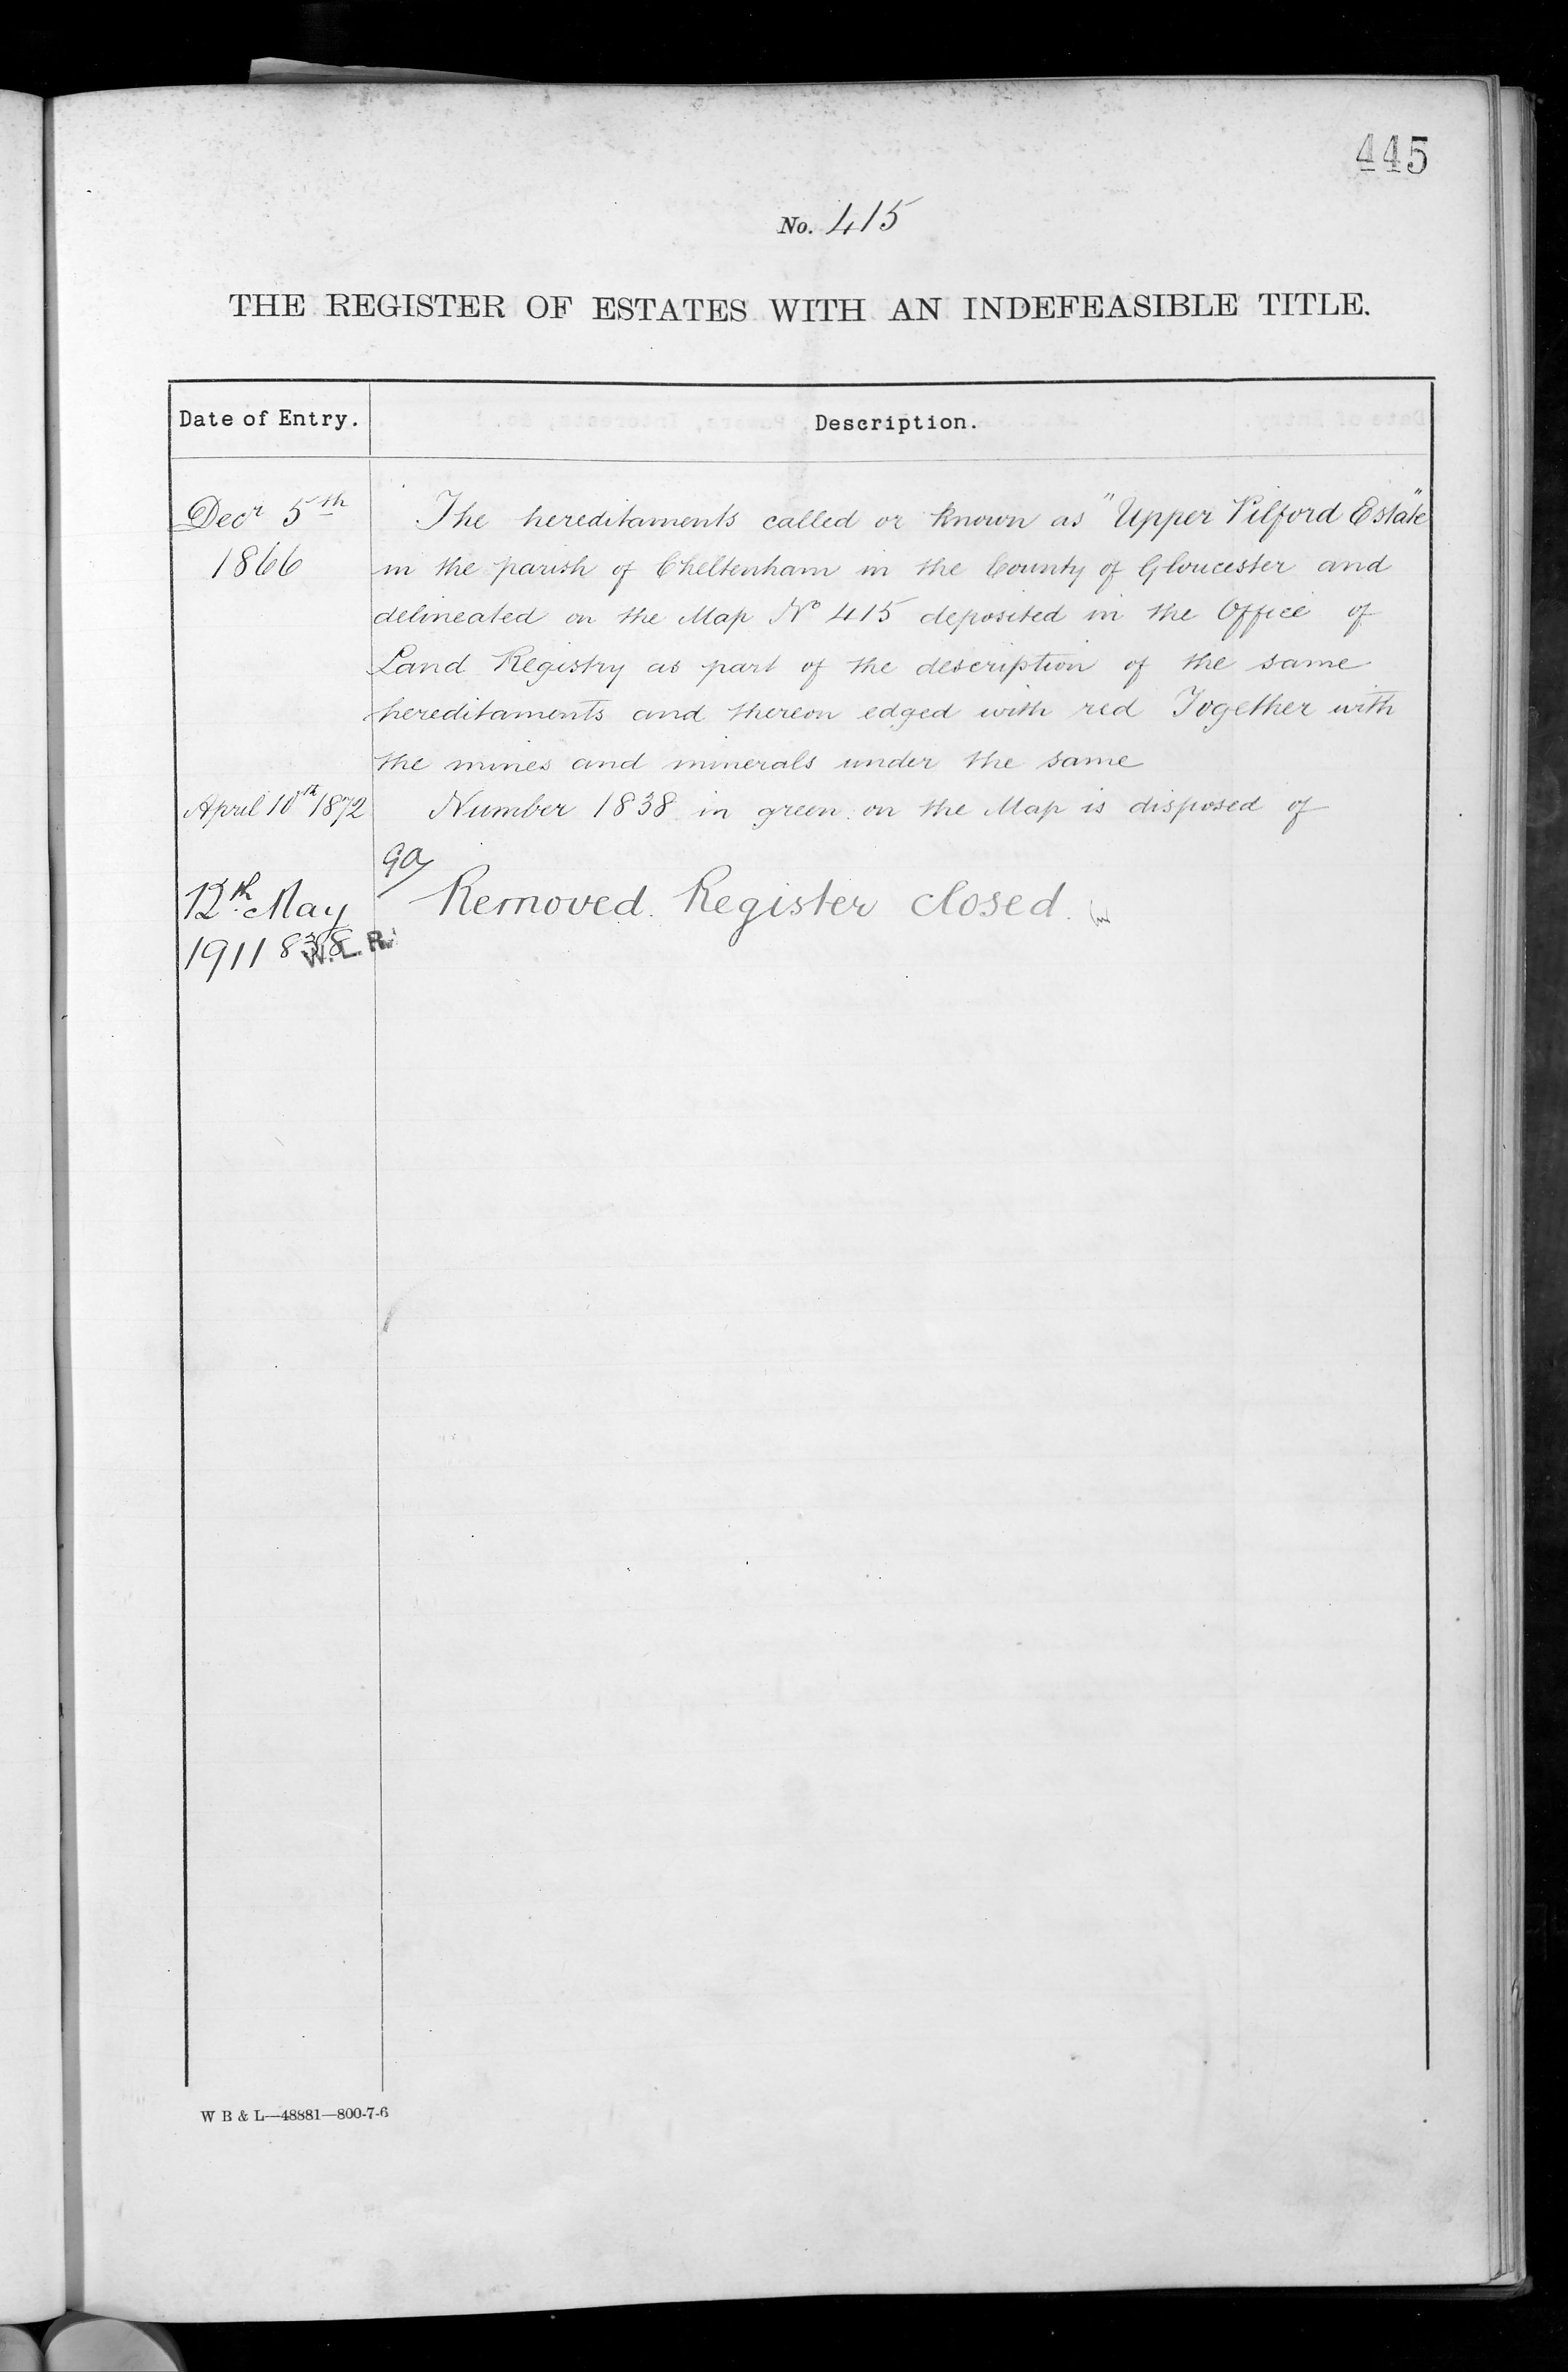 445
No. 415
THE REGISTER OF ESTATES WITH AN INDEFEASIBLE TITLE.
Date of Entry.
Description.
Decr 5th
1866
The hereditaments called or known as "Upper Pilford Estate"
in the parish of Cheltenham in the County of Gloucester and
delineated on the Map No 415 deposited in the Office of
Land Registry as part of the description of the same
hereditaments and thereon edged with red Together with
the mines and minerals under the same
April 10th 1872
Number 1838 in green on the Map is disposed of
12th May
1911
Removed. Register closed.
W.L.R.
W B & L—48881—800-7-6